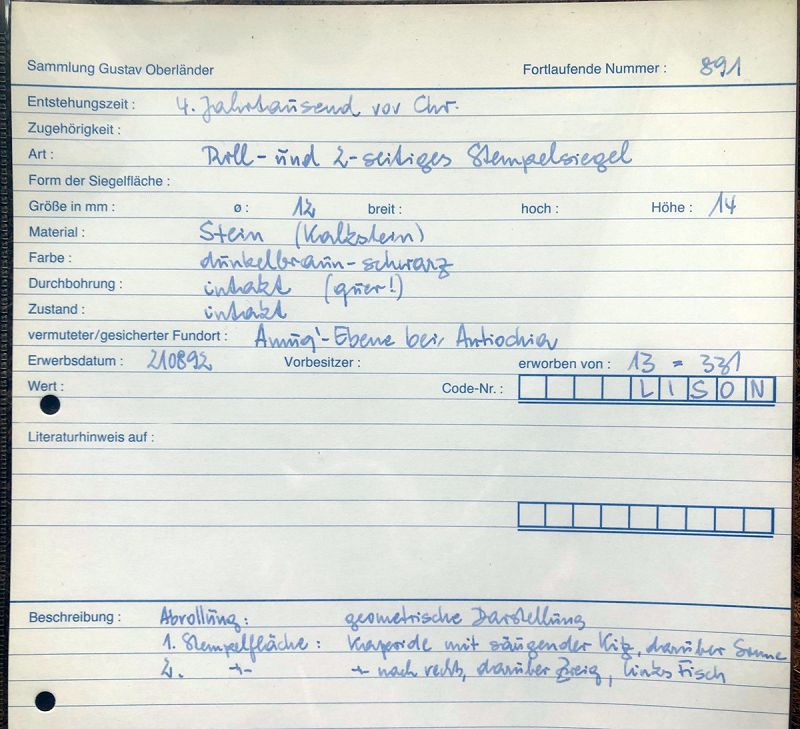 Sammlung Gustav Oberländer Fortlaufende Nummer : 891
Entstehungszeit : 4. Jahrtausend vor Chr.
Zugehörigkeit :
Art : Roll- und 2-seitiges Stempelsiegel
Form der Siegelfläche :
Größe in mm : ø : 12 breit : hoch : Höhe : 14
Material : Stein (Kalkstein)
Farbe : dunkelbraun-schwarz
Durchbohrung : intakt (quer!)
Zustand : intakt
vermuteter/gesicherter Fundort : Amuq'-Ebene bei Antiochia
Erwerbsdatum : 210892 Vorbesitzer : erworben von : 13 = 331
Wert : Code-Nr. : LISON
Literaturhinweis auf :
Beschreibung : Abrollung : geometrische Darstellung
1. Stempelfläche : Kapride mit säugender Kitz, darüber Sonne
2. -"- -"- nach rechts, darüber Zweig, links Fisch